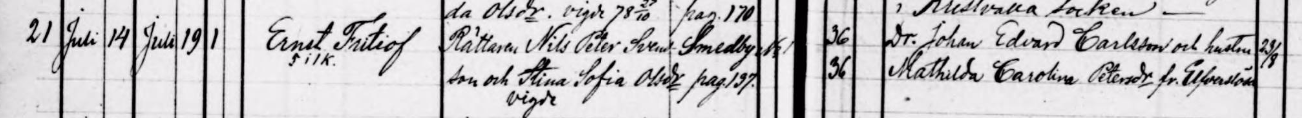 da Olsdr. vigde 78 29/10 pag. 170 socken
21 Juli 14 Juli 19 1 Ernst Fritiof Rättaren Nils Peter Svens- Smedby 36 Dr. Johan Edvard Carlsson och hustru 23/8
5 i lk. son och Stina Sofia Olsdr pag. 137. 36 Mathilda Carolina Petersdr fr.
vigde